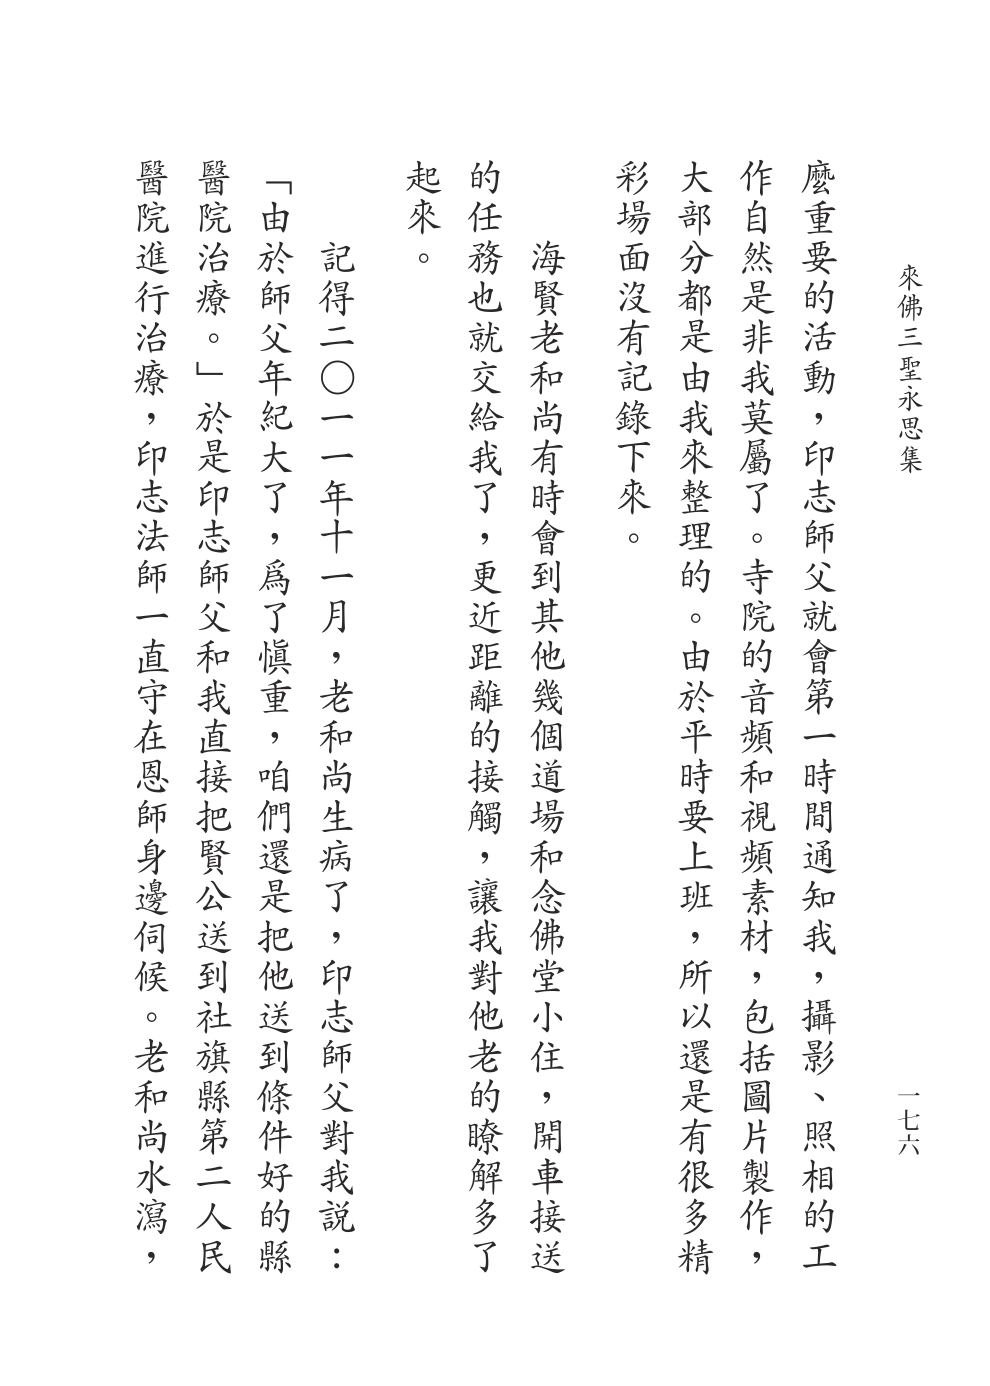 來佛三聖永思集
一七六
麼重要的活動，印志師父就會第一時間通知我，攝影、照相的工
作自然是非我莫屬了。寺院的音頻和視頻素材，包括圖片製作，
大部分都是由我來整理的。由於平時要上班，所以還是有很多精
彩場面沒有記錄下來。
海賢老和尚有時會到其他幾個道場和念佛堂小住，開車接送
的任務也就交給我了，更近距離的接觸，讓我對他老的瞭解多了
起來。
記得二〇一一年十一月，老和尚生病了，印志師父對我説：
「由於師父年紀大了，爲了慎重，咱們還是把他送到條件好的縣
醫院治療。」於是印志師父和我直接把賢公送到社旗縣第二人民
醫院進行治療，印志法師一直守在恩師身邊伺候。老和尚水瀉，